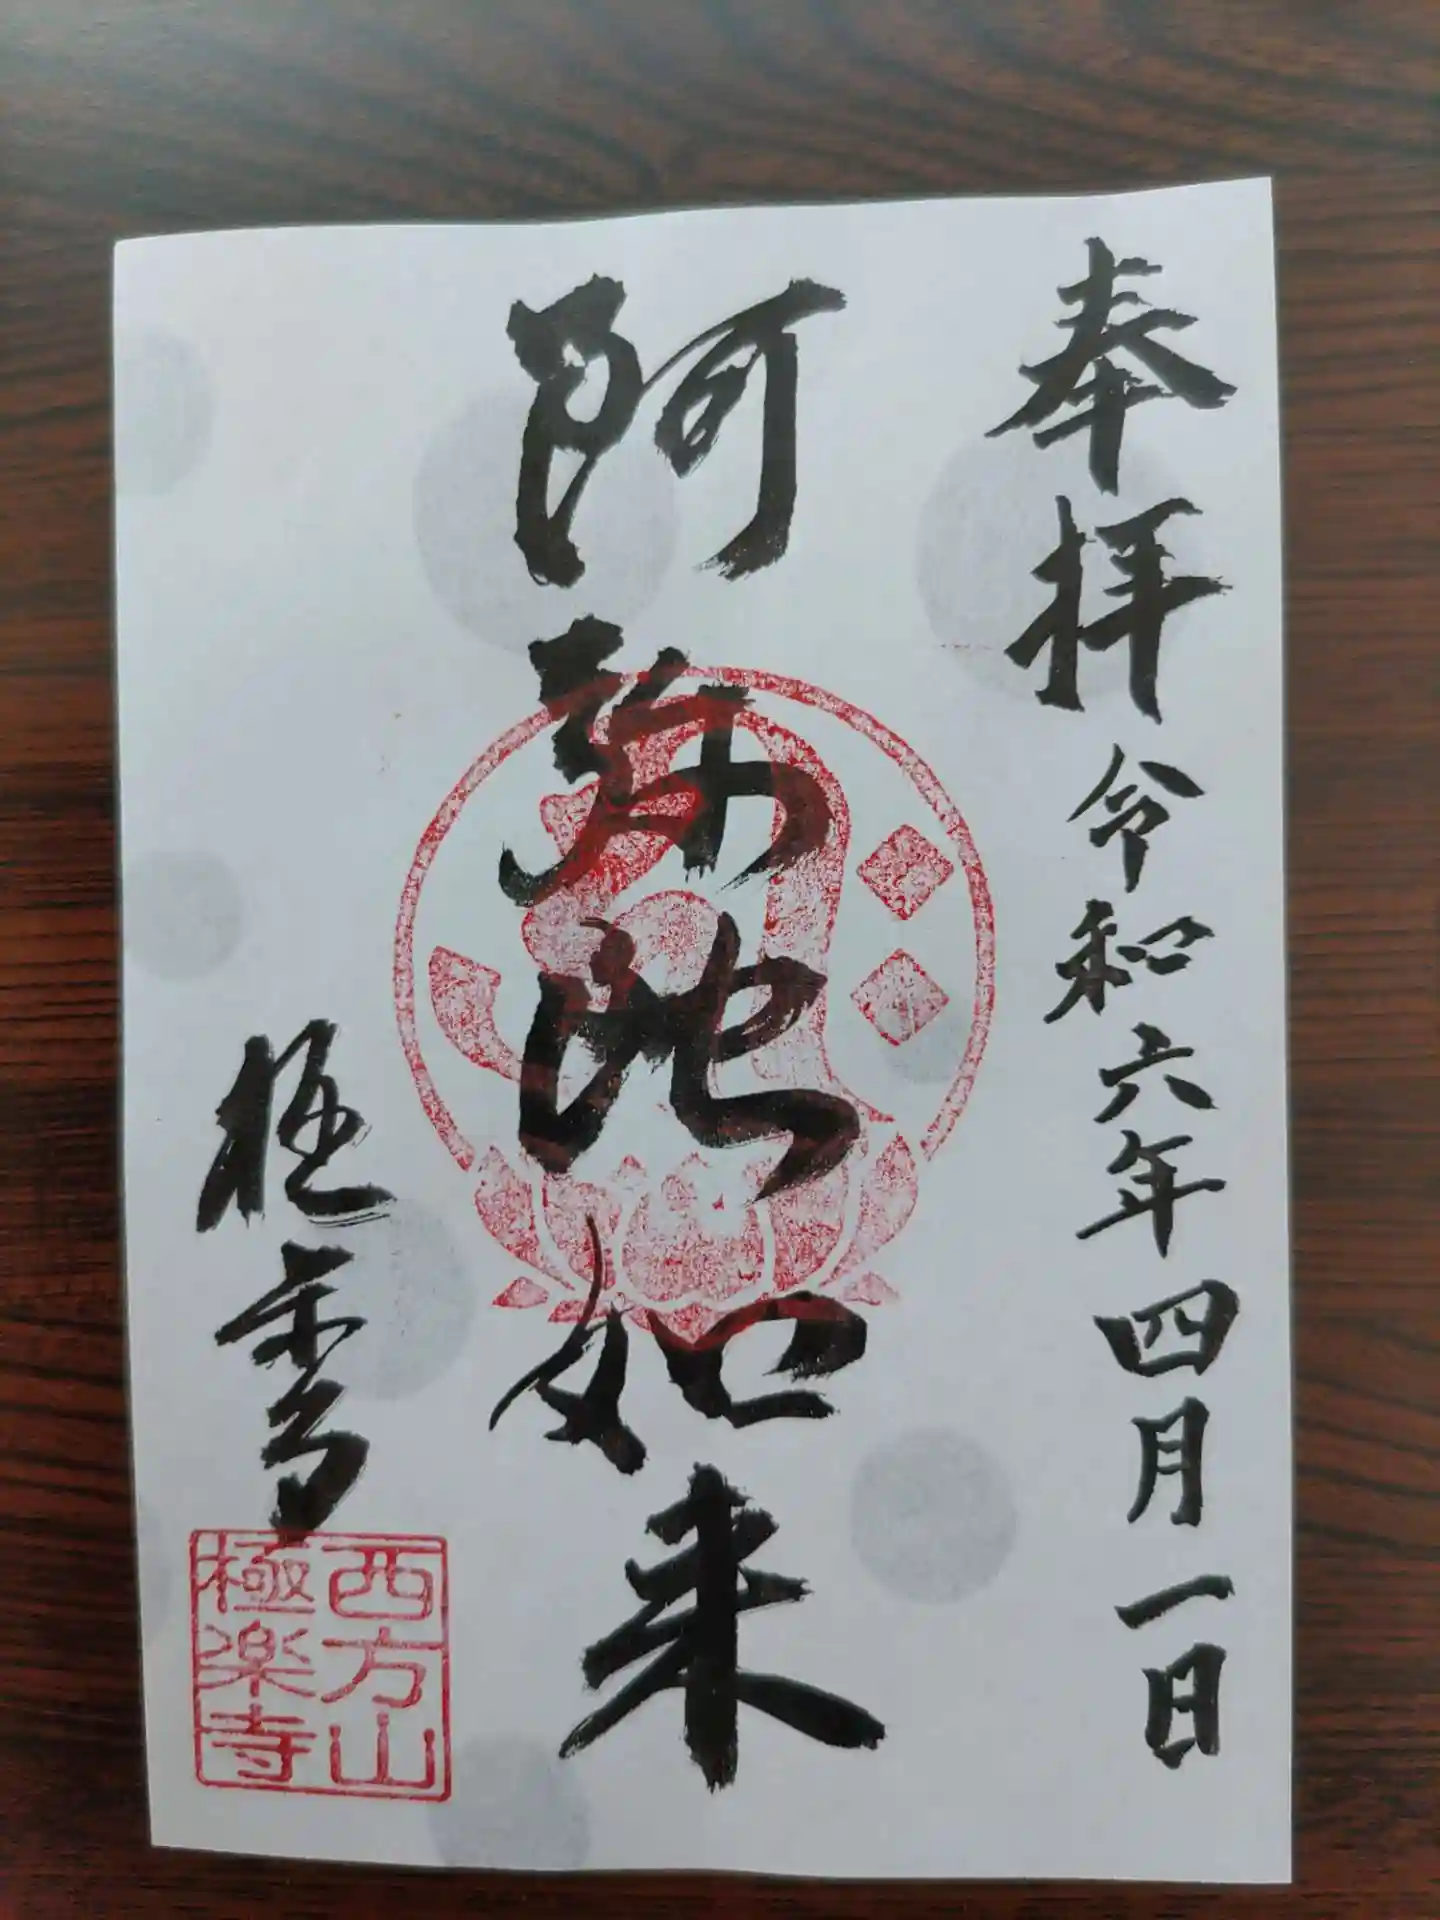 奉拝
令和六年四月一日
阿弥陀如来
極楽寺
西方山
極楽寺